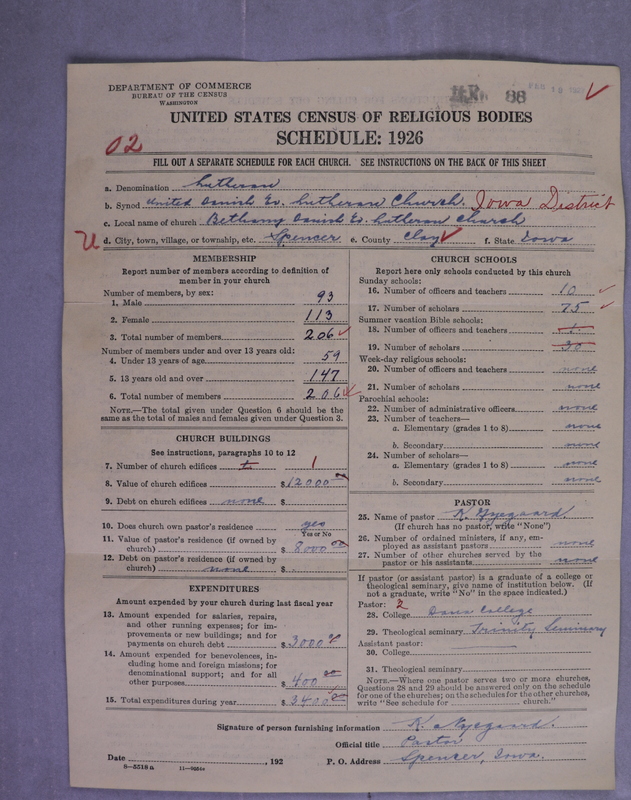 DEPARTMENT OF COMMERCE
BUREAU OF THE CENSUS
WASHINGTON
88
UNITED STATES CENSUS OF RELIGIOUS BODIES
SCHEDULE: 1926
02
FILL OUT A SEPARATE SCHEDULE FOR EACH CHURCH. SEE INSTRUCTIONS ON THE BACK OF THIS SHEET
a. Denomination Lutheran
b. Synod United Danish Ev. Lutheran Church. Iowa District
c. Local name of church Bethany Danish Ev. Lutheran Church
U d. City, town, village, or township, etc. Spencer e. County Clay f. State Iowa
MEMBERSHIP
Report number of members according to definition of
member in your church
Number of members, by sex:
1. Male 93
2. Female 113
3. Total number of members 206
Number of members under and over 13 years old:
4. Under 13 years of age 59
5. 13 years old and over 147
6. Total number of members 206
NOTE.—The total given under Question 6 should be the
same as the total of males and females given under Question 3.
CHURCH BUILDINGS
See instructions, paragraphs 10 to 12
7. Number of church edifices 1
8. Value of church edifices $12000
9. Debt on church edifices none $
10. Does church own pastor's residence yes
Yes or No
11. Value of pastor's residence (if owned by
church) $8000 00
12. Debt on pastor's residence (if owned by
church) none $
EXPENDITURES
Amount expended by your church during last fiscal year
13. Amount expended for salaries, repairs,
and other running expenses; for im-
provements or new buildings; and for
payments on church debt $3000 00
14. Amount expended for benevolences, in-
cluding home and foreign missions; for
denominational support; and for all
other purposes $400 00
15. Total expenditures during year $3400 00
CHURCH SCHOOLS
Report here only schools conducted by this church
Sunday schools:
16. Number of officers and teachers 10
17. Number of scholars 75
Summer vacation Bible schools:
18. Number of officers and teachers 1
19. Number of scholars 30
Week-day religious schools:
20. Number of officers and teachers none
21. Number of scholars none
Parochial schools:
22. Number of administrative officers none
23. Number of teachers—
a. Elementary (grades 1 to 8) none
b. Secondary none
24. Number of scholars—
a. Elementary (grades 1 to 8) none
b. Secondary none
PASTOR
25. Name of pastor K. Nyegaard.
(If church has no pastor, write "None")
26. Number of ordained ministers, if any, em-
ployed as assistant pastors none
27. Number of other churches served by the
pastor or his assistants none
If pastor (or assistant pastor) is a graduate of a college or
theological seminary, give name of institution below. (If
not a graduate, write "No" in the space indicated.)
Pastor: 2
28. College Dana College
29. Theological seminary Trinity Seminary
Assistant pastor:
30. College
31. Theological seminary
NOTE.—Where one pastor serves two or more churches,
Questions 28 and 29 should be answered only on the schedule
for one of the churches; on the schedules for the other churches,
write "See schedule for church."
Signature of person furnishing information K. Nyegaard.
Official title Pastor
Date , 192 P. O. Address Spencer, Iowa.
8—5518a